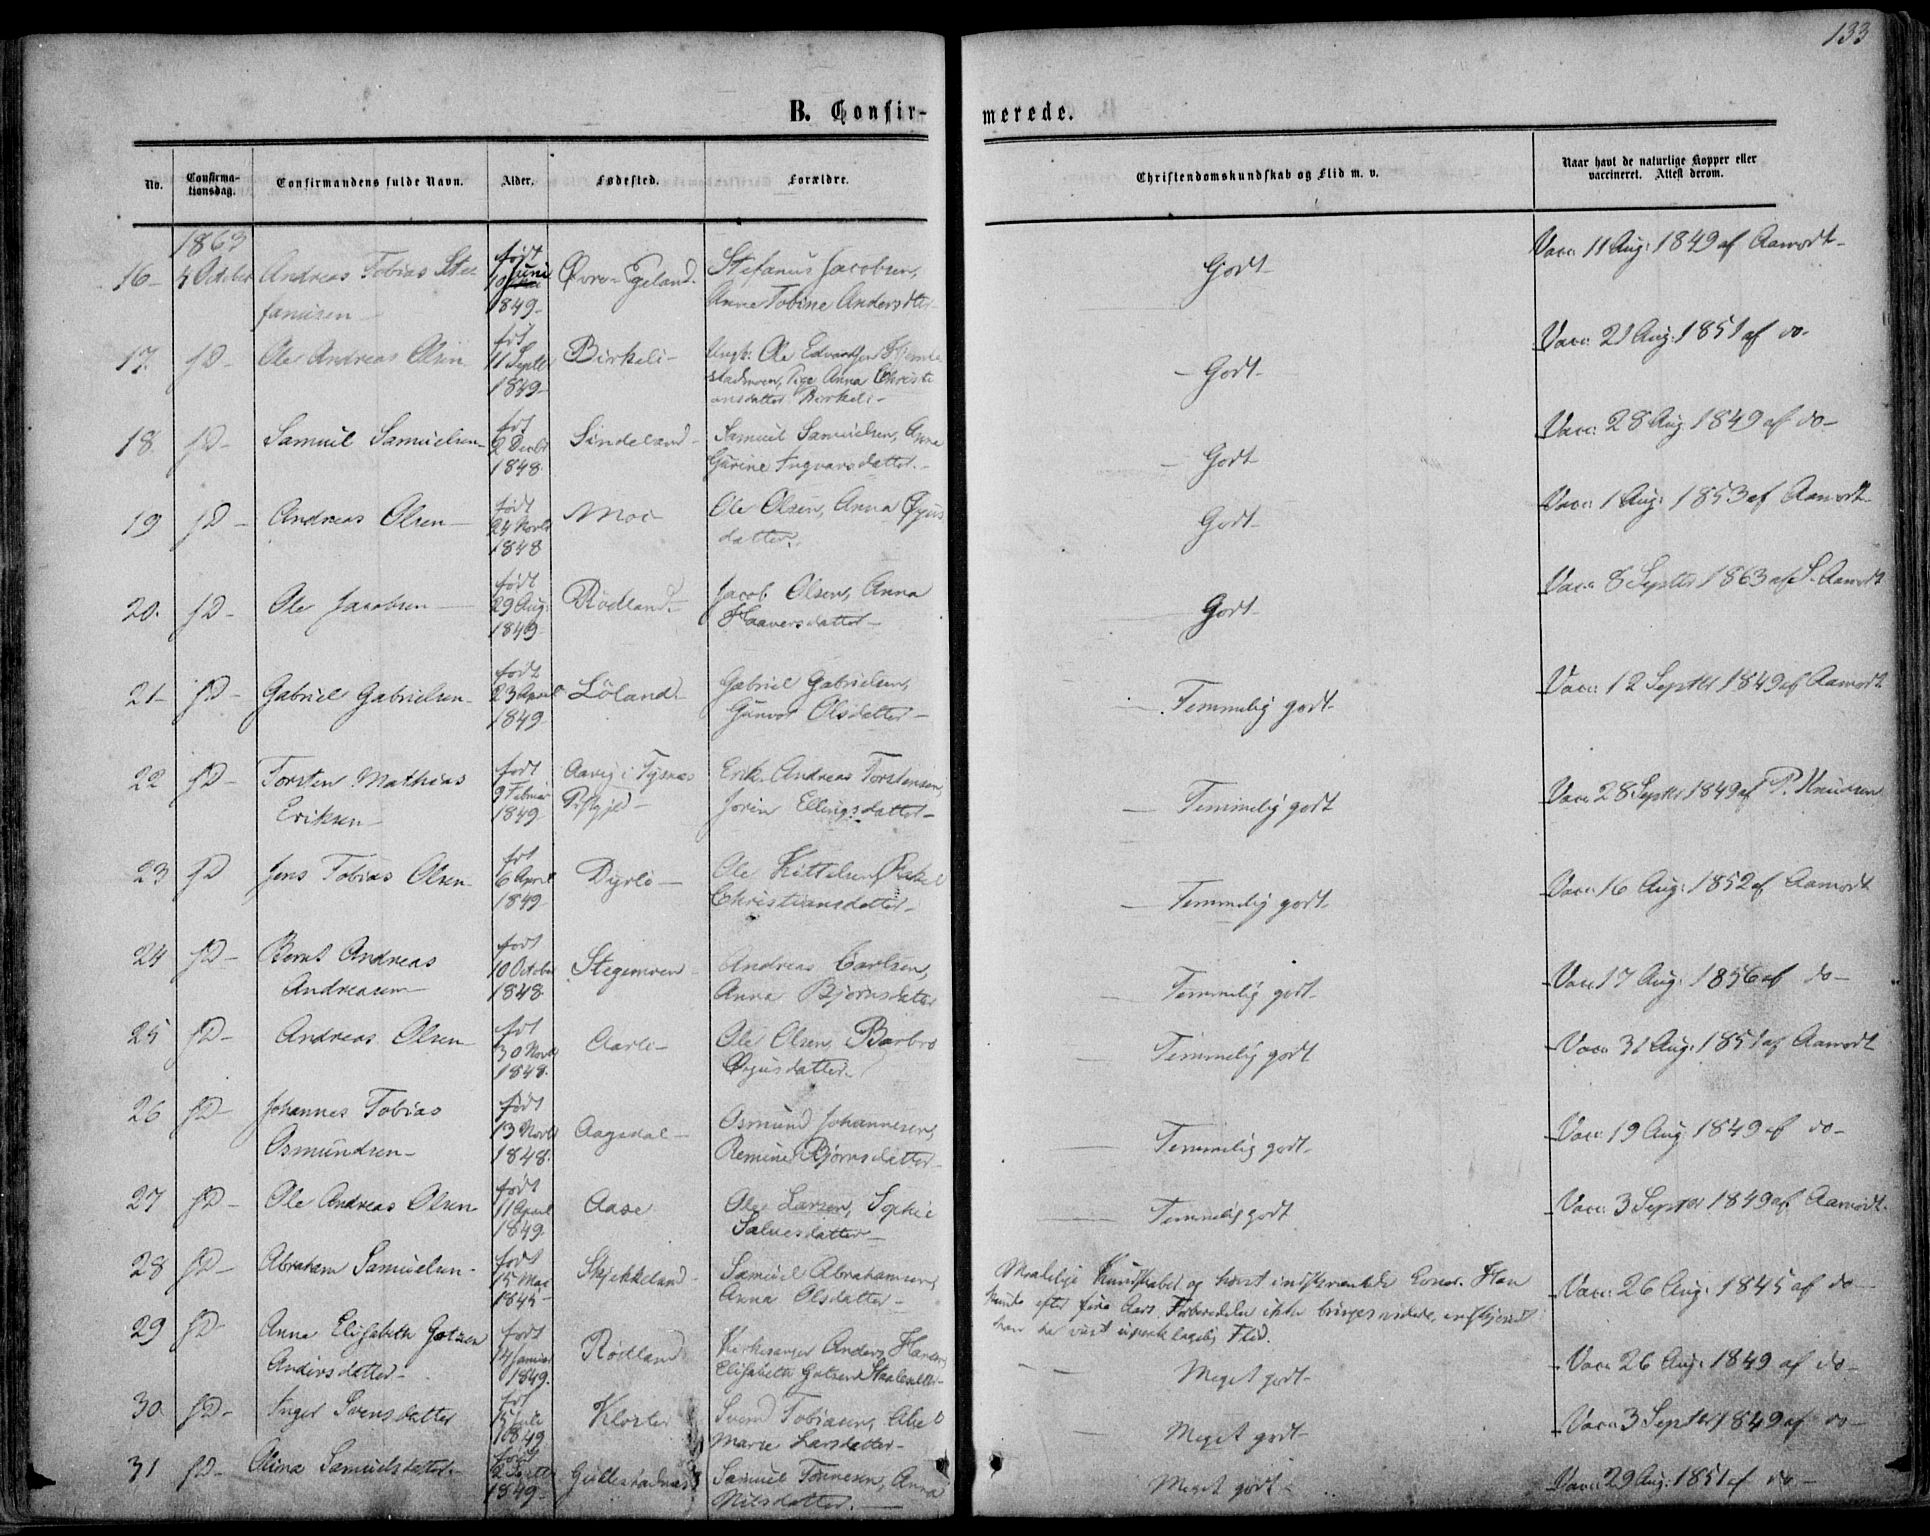 133
B. Confir-
merede.
No.
Confirma-
tionsdag.
Confirmandens fulde Navn.
Alder.
Fødested.
Forældre.
Christendomskundskab og Flid m. v.
Naar havt de naturlige Kopper eller
vaccineret. Attest derom.
1863
16 4 October Andreas Tobias Ste-
fanusen
født
10 Juni
1849
Øvre Egeland
Stefanus Jacobsen,
Anna Tobine Andersdtter
Godt
Vacc. 11 Aug. 1849 af Aamodt
17. D Ole Andreas Olsen
føt
11 Septb
1849
Birkeli
Ungk: Ole Edvardsen
Pige Anna Christi
ansdatter Birkeli
Godt
Vacc. 21 Aug. 1851 af do
18 D Samuel Samuelsen
føt
2 Decbr
1848
Sindeland
Samuel Samuelsen, Anne
Gurine Ingvarsdatter
Godt
Vacc. 28 Aug 1849 af do
19 D Andreas Olsen
født
24 Novbr
1848
Moe
Ole Olsen, Anna Øjus
datter
Godt
Vacc. 1 Aug. 1853 af Aamodt
20. D Ole Jacobsen
født
29 Aug.
1849
Rødland
Jacob Olsen, Anna
Haaversdatter
Godt
Vacc. 8 Septbr 1863 af S. Aamodt
21 D Gabriel Gabrielsen
født
23 April
1849
Löland
Gabriel Gabrielsen,
Gunvor Olsdatter
Temmelig godt
Vacc. 12 Septbr 1849 af Aamodt
22 D Torsten Mathias
Eriksen
født
9 Februar
1849
Aavig i Tysnæs
Erik Andreas Torstensen,
Jorin Ellingsdatter
Temmelig godt
Vacc. 28 Septbr 1849 af P. Knudsen
23 D Jens Tobias Olsen
føt
6 April
1849
Dyrli
Ole Kittelsen, Rakel
Christiansdatter
Temmelig godt
Vacc. 16 Aug. 1852 af Aamodt
24 D Bernt Andreas
Andreasen
født
10 October
1848
Stegemoen
Andreas Carlsen,
Anna Bjørnsdatter
Temmelig godt
Vacc. 17 Aug. 1856 af do
25 D Andreas Olsen
føt
30 Novbr
1848.
Aarli
Ole Olsen, Barbro
Øjusdatter
Temmelig godt
Vacc. 31 Aug. 1851 af Aamodt
26 D Johannes Tobias
Osmundsen
født
13 Novbr
1848.
Aagedal
Osmund Johannesen,
Bjørnsdatter
Temmelig godt
Vacc. 19 Aug 1849 af do
27 D Ole Andreas Olsen
født
11 April
1849.
Aase
Ole Larsen, Sophie
Salvesdatter
Temmelig godt
Vacc. 3 Septbr 1849 af Aamodt
28 D Abraham Samuelsen
født
15 Mai
1845
Skjekkeland
Samuel Abrahamsen,
Anna Olsdatter
Maadelige Kundskaber og høist indskrænkede Evner. Han
kunde efter fire Aars Forberedelse ikke bringes videre, endskjøndt
han har viist upaaklagelig Flid.
Vacc. 26 Aug. 1845 af do
29 D Anna Elisabeth Gotzen
Andersdatter
født
14 Januar
1849.
Rødland
Kirkesanger Anders Hansen,
Elisabeth Gotzen
Meget godt
Vacc. 26 Aug. 1849 af do
30 D Inger Svensdatter
føt
15 Juli
1849
Kloster
Svend Tobiasen, Abel
Marie Larsdatter
Meget godt
Vacc. 3 Septbr 1849 af do
31 D Olina Samuelsdatter
født
2 Septb
1849
Samuel Tønnesen, Anna
Nilsdatter.
Meget godt
Vacc. 29 Aug. 1851 af do